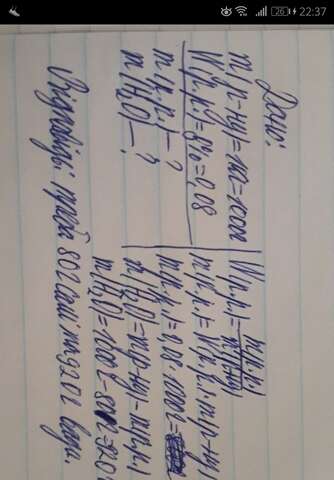 22:37
26
Дано:
m(р-ну)=1кг=1000г
W(р.р.)=8%=0,08
m(р.р.)-?
m(H₂O)-?
W(р.р.)=m(р.р.)/m(р-ну)
m(р.р.)=W(р.р.)·m(р-ну)
m(р.р.)=0,08·1000г=
m(H₂O)=m(р-ну)-m(р.р.)
m(H₂O)=1000г-80г=920г
Відповідь: треба 80г солі та 920г води.